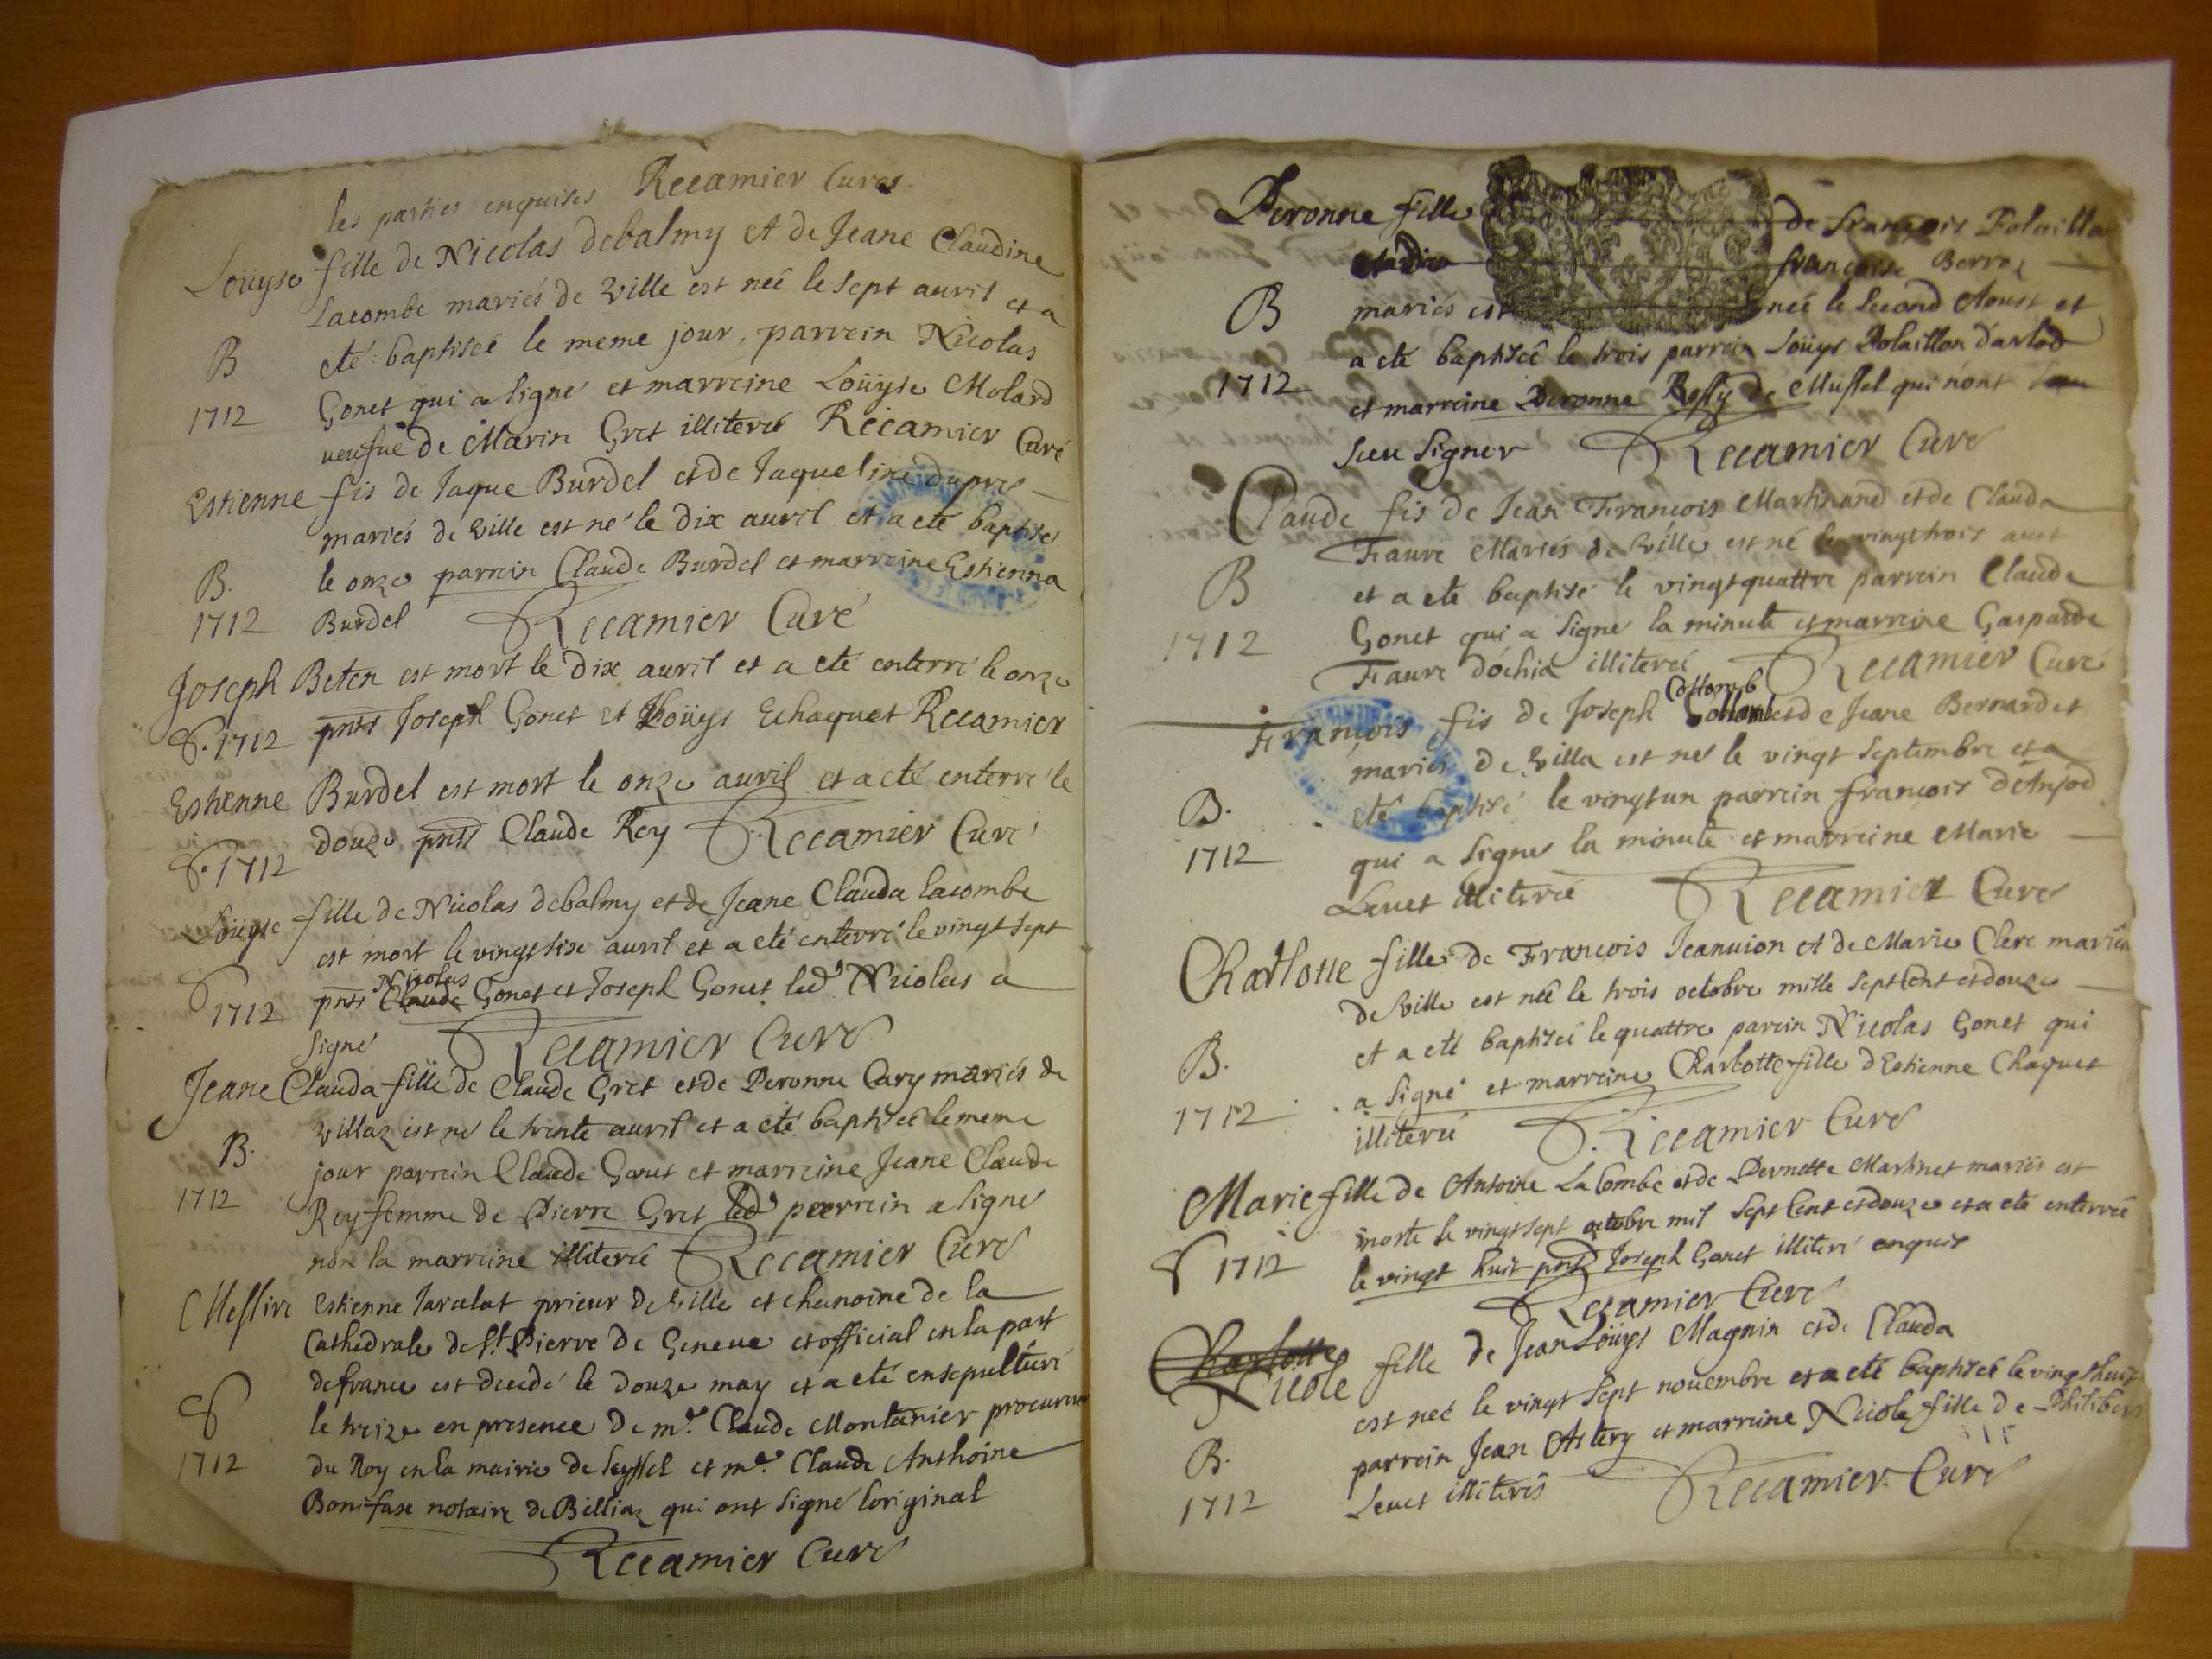 les parties enquises Recamier Curé
Loüyse fille de Nicolas debalmy et de Jeane Claudine
Lacombe mariés de ville est neé le sept auril et a
B
eté baptiseé le meme jour, parrein Nicolas
1712
Gonet qui a signé et marreine Loüyse Molard
ueufue de Marin Gret illitereé Recamier Curé
Estienne fis de Jaque Burdel et de Jaqueline dupres
mariés de ville est né le dix auril et a eté baptisé
B.
le onze parrein Claude Burdel et marreine Estienna
1712
Burdel Recamier Curé
Joseph Beten est mort le dix auril et a eté enterré le onze
S. 1712
pnts Joseph Gonet et Loüys Echaquet Recamier
Estienne Burdel est mort le onze auril et a eté enterré le
douze pnts Claude Rey Recamier Curé
S. 1712
Loüyse fille de Nicolas debalmy et de Jeane Clauda lacombe
est mort le vingt sixe auril et a eté enterré le vingt sept
Nicolas
S 1712
pnts Claude Gonet et Joseph Gonet led Nicolas a
signé Recamier Curé
Jeane Clauda fille de Claude Gret et de Peronne Cary mariés de
villaz est né le trente auril et a eté baptiseé le meme
B.
jour parrein Claude Gonet et marreine Jeane Claude
1712
Rey femme de Pierre Gret led parrein a signé
non la marreine illitereé Recamier Curé
Messire Estienne Jarcelat prieur de ville et chanoine de la
Cathedrale de St Pierre de Geneue et official en la part
de france est decidé le douze may et a eté ensepulturé
S
le treize en presence de mr. Claude Montanier procureur
1712
du Roy en la mairie de seyssel et me. Claude Anthoine
Bonifase notaire de Billiaz qui ont signé loriginal
Recamier Curé
Peronne fille de françois Polaillon
françoise Berroz
B
mariés est neé le second Aoust et
a eté baptiseé le trois parrein Loüys Polaillon darlod
1712
et marreine Peronne Rossy de Mussel qui nont
sceu signer Recamier Curé
Claude fis de Jean François Martinand et de Clauda
Faure Mariés de ville est né le vingt trois aust
B
et a eté baptisé le vingt quattre parrein Claude
1712
Gonet qui a signé la minute et marreine Gasparde
Faure dochia illitereé Recamier Curé
Collomb
François fis de Joseph Collomb et de Jeane Bernardet
mariés de villa est né le vingt septembre et a
B.
eté baptisé le vingt un parrein françois d'Anjod
1712
qui a signé la minute et marreine Marie
Leuet illitereé Recamier Curé
Charlotte fille de François Jeanuion et de Marie Clerc mariés
de ville est neé le trois octobre mille sept cent et douze
B.
et a eté baptiseé le quattre parein Nicolas Gonet qui
1712
a signé et marreine Charlotte fille d'Estienne Chaquet
illitereé Recamier Curé
Marie fille de Antoine La Combe et de Pernette Martinet mariés est
morte le vingt sept octobre mil sept cent et douze et a eté enterreé
S 1712
le vingt huit pnts Joseph Gonet illiteré enquis
Recamier Curé
Charlotte
Nicole fille de Jean Loüys Magnin et de Clauda
est neé le vingt sept nouembre et a eté baptiseé le vingt huit
B.
parrein Jean Astery et marreine Nicole fille de Philibert
1712
Leuet illiterés Recamier Curé